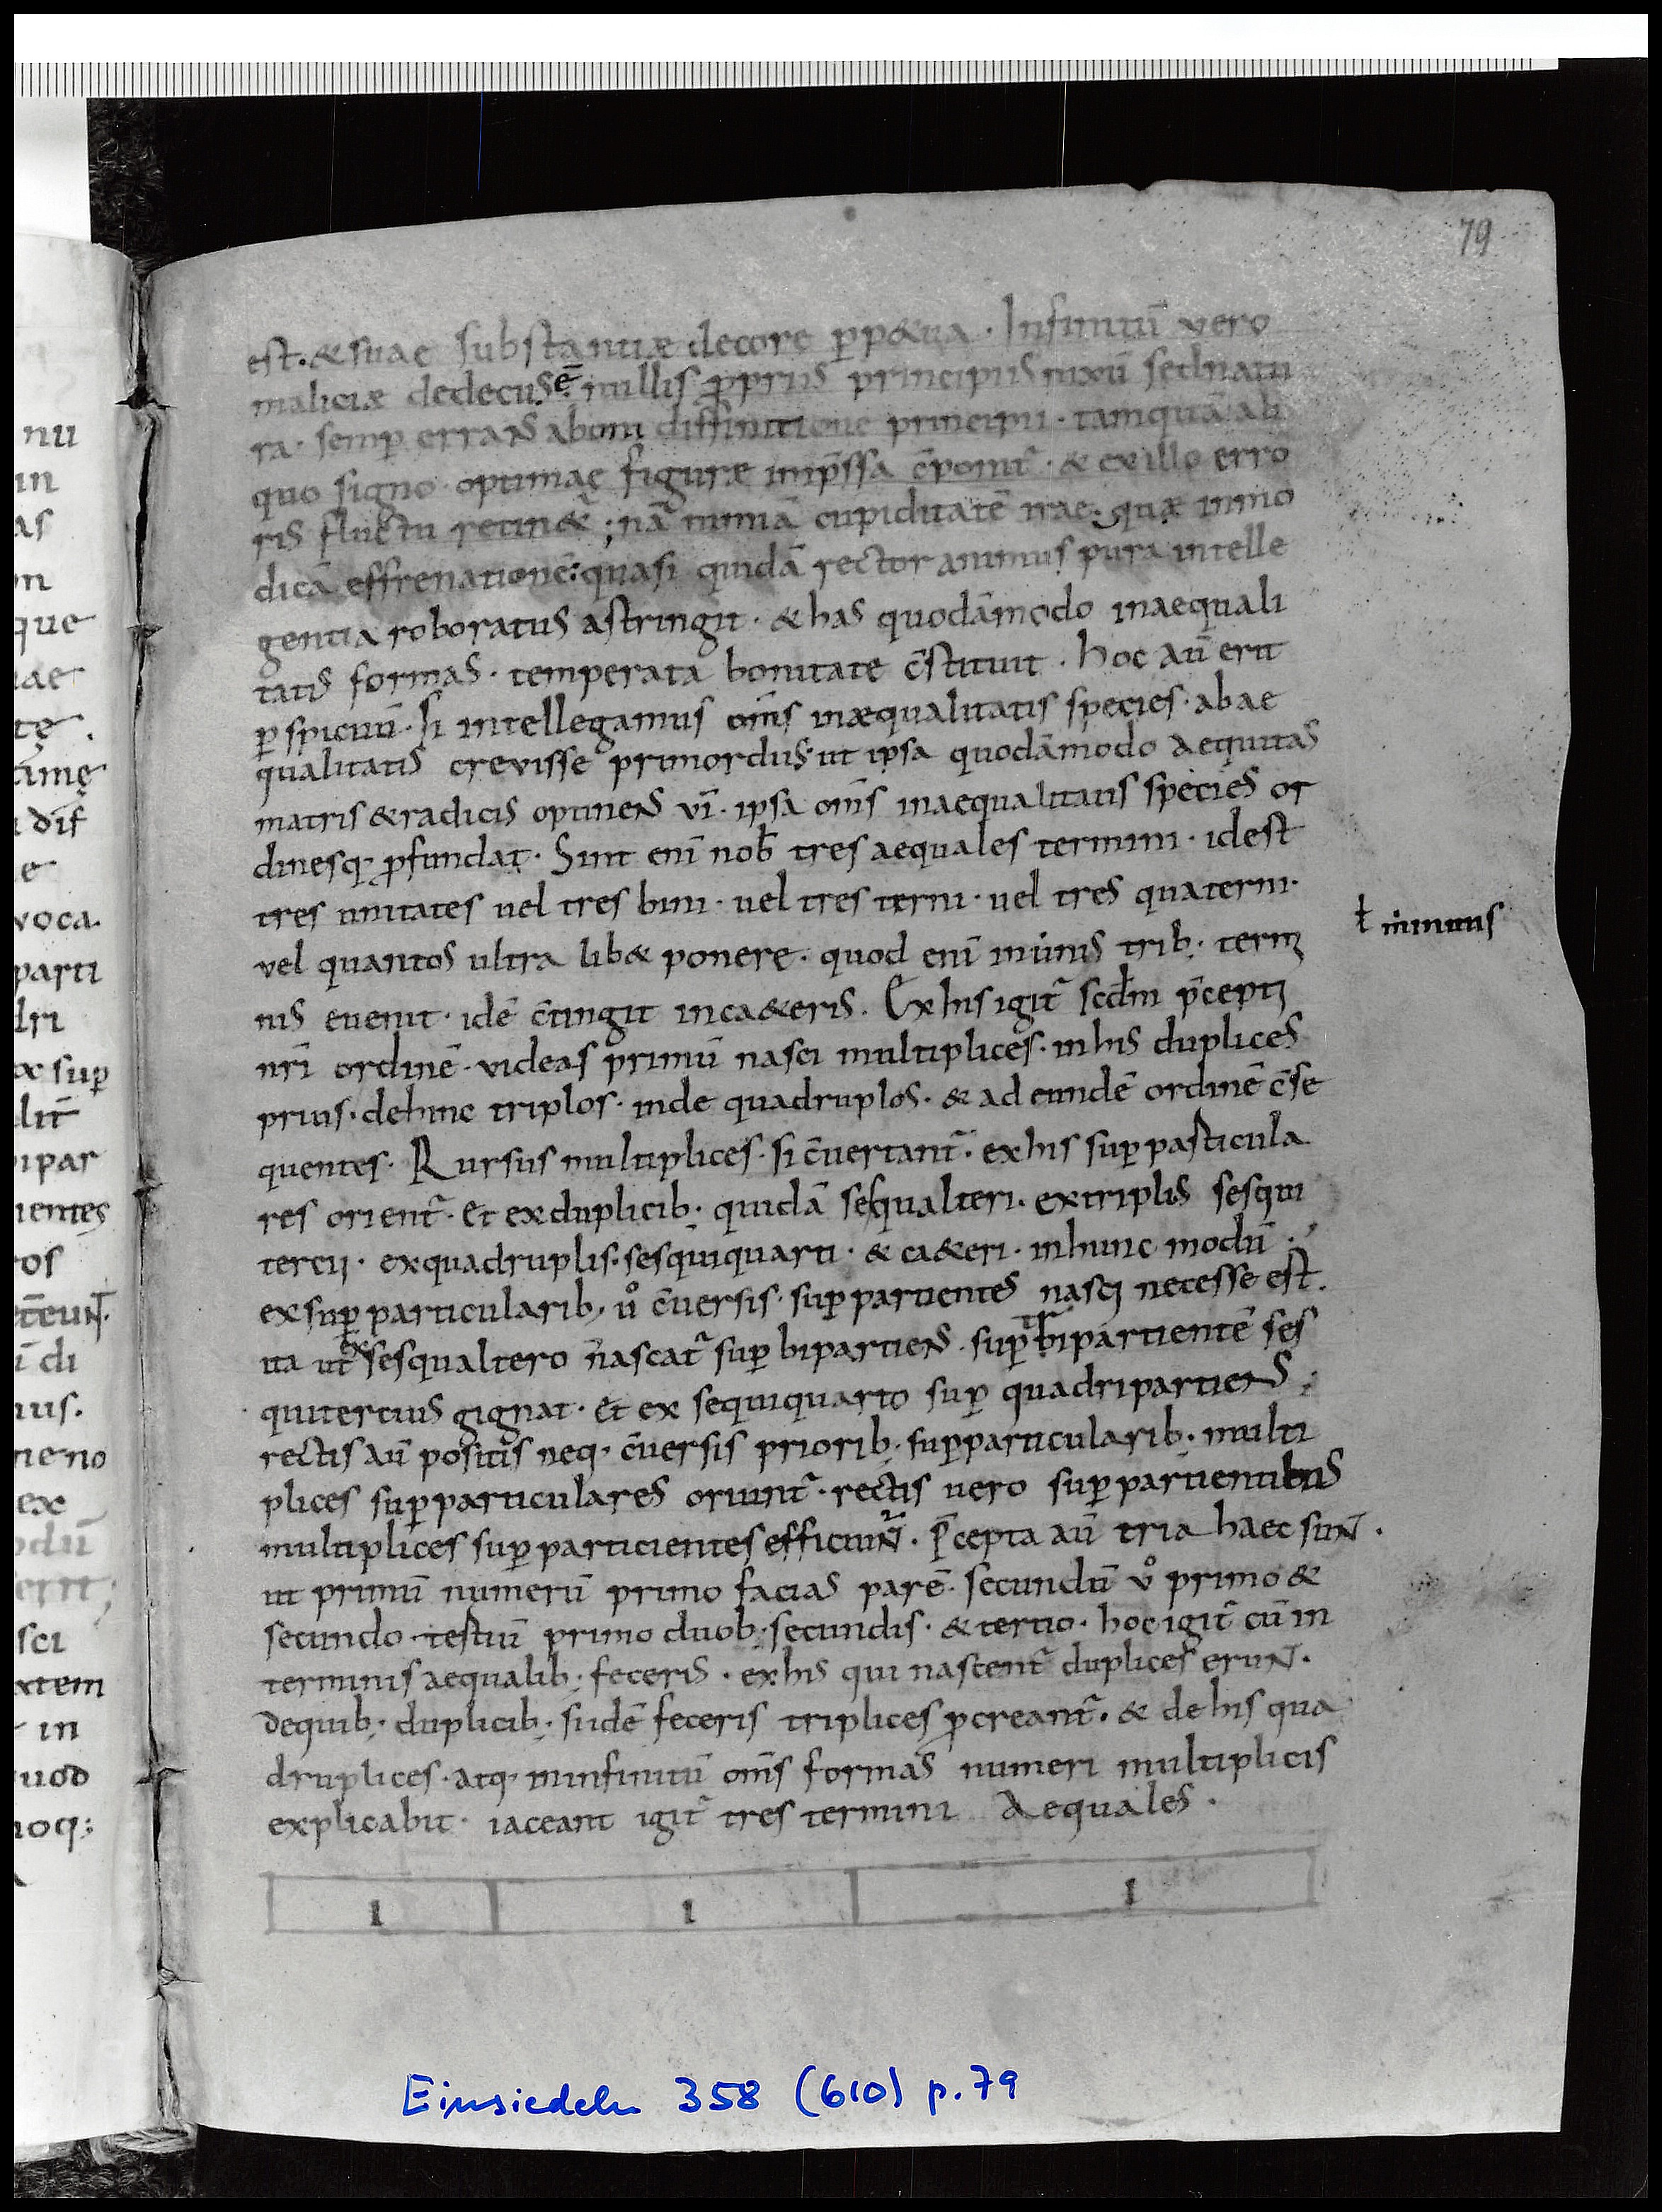 79
est. & suae substantiæ decore ꝑp&ua. Infinitū vero
maliciæ dedecus ē nullis ꝓpriis principiis nixū sed natu
ra. semꝑ errans a boni diffinitione principii. tamquā ali
quo signo optimae figuræ imp̄ssa c̄ponit᷒. & ex illo erro
ris fluctu retin&᷒; nā nimiā cupiditatē irae. quæ inmo
dicā effrenationē: quasi quidā rector animus pura intelle
gentia roboratus astringit. & has quodāmodo inaequali
tatis formas. temperata bonitate c̄stituit. hoc aū erit
ꝑspicuū. si intellegamus oms̄ inæqualitatis species. ab ae
qualitatis crevisse primordiis. ut ipsa quodāmodo aequitas
matris & radicis optinens vī. ipsa oms̄ inaequalitatis species or
dinesq. ꝓfundat. Sint enī nob̄ tres aequales termini. id est
tres unitates uel tres bini. uel tres terni. uel tres quaterni.
vel quantos ultra lib& ponere. quod enī in unis trib. termi
ł in unus
nis euenit. idē c̄tingit in ca&eris. Ex his igit᷒ scdm̄ p̄cepti
nr̄i ordinē. videas primū nasci multiplices. in his duplices
prius. dehinc triplos. inde quadruplos. & ad eundē ordinē c̄se
quentes. Rursus multiplices. si c̄uertant᷒. ex his suꝑparticula
res orient᷒. Et ex duplicib. quidā sesqualteri. ex triplis sesqui
tercii. ex quadruplis. sesquiquarti. & ca&eri. in hunc modū.
ex suꝑparticularib. ů c̄uersis. suꝑpartientes nasci necesse est.
ita ut ex sesqualtero nascat᷒ suꝑ bipartiens. suꝑ tribipartientē ses
quitertius gignat. Et ex sequiquarto suꝑ quadripartiens.
rectis aū positis neq. c̄uersis priorib. suꝑparticularib. multi
plices suꝑparticulares oriunt᷒. rectis uero suꝑpartientibus
multiplices suꝑparticientes efficiunt᷒. P̄cepta aū tria haec sunt.
ut primū numerū primo facias parē. secundū v̊ primo &
secundo tertiū primo duob. secundis. & tertio. hoc igit᷒ cū in
terminis aequalib. feceris. ex his qui nascent᷒ duplices erunt.
de quib. duplicib. si idē feceris triplices ꝓcreant᷒. & de his qua
druplices. atq. in infinitū oms̄ formas numeri multiplicis
explicabit. iaceant igit᷒ tres termini Aequales.
I I I
Einsiedeln 358 (610) p. 79